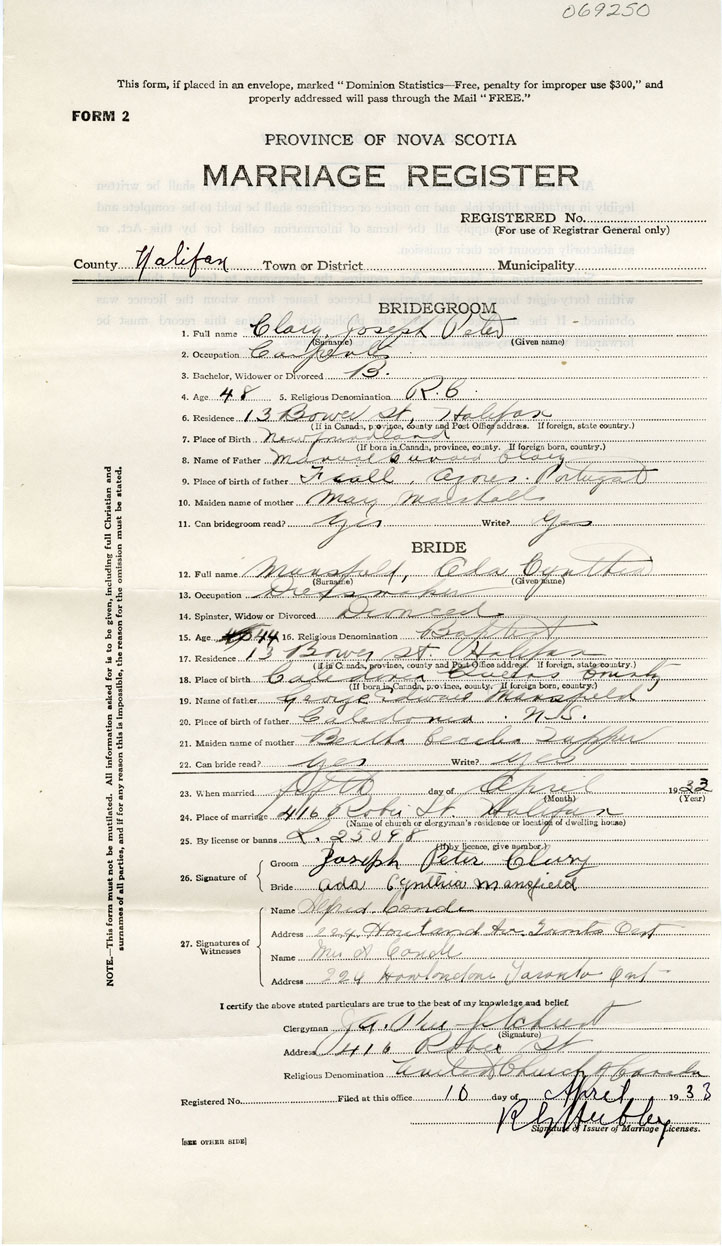 069250
This form, if placed in an envelope, marked "Dominion Statistics—Free, penalty for improper use $300," and
properly addressed will pass through the Mail "FREE."
FORM 2
PROVINCE OF NOVA SCOTIA
MARRIAGE REGISTER
REGISTERED No.
(For use of Registrar General only)
County Halifax Town or District Municipality
BRIDEGROOM
1. Full name Clary, Joseph Peter
(Surname) (Given name)
2. Occupation
3. Bachelor, Widower or Divorced B.
4. Age 48 5. Religious Denomination R.C.
6. Residence 13 Bower St, Halifax
(If in Canada, province, county and Post Office address. If foreign, state country.)
7. Place of Birth Newfoundland
(If born in Canada, province, county. If foreign born, country.)
8. Name of Father Manuel Clary
9. Place of birth of father Azores. Portugal
10. Maiden name of mother Mary Marshalls
11. Can bridegroom read? Yes Write? Yes
BRIDE
12. Full name Mansfield, Ada Cynthia
(Surname) (Given name)
13. Occupation Dressmaker
14. Spinster, Widow or Divorced Divorced
15. Age 44 16. Religious Denomination Baptist
17. Residence 13 Bower St Halifax
(if in Canada, province, county and Post Office address. If foreign, state country.)
18. Place of birth Caledonia Queens County
(If born in Canada, province, county. If foreign born, country.)
19. Name of father George Mansfield
20. Place of birth of father Caledonia. N.S.
21. Maiden name of mother Bertha Cecelia Tupper
22. Can bride read? Yes Write? Yes
23. When married fifth day of April 1933
(Month) (Year)
24. Place of marriage 416 Robie St. Halifax
(Name of church or clergyman's residence or location of dwelling house)
25. By license or banns L. 25098
(If by licence, give number.)
26. Signature of Groom Joseph Peter Clary
Bride Ada Cynthia Mansfield
27. Signatures of Witnesses
Name Alfred Conde
Address 224 Howland Av. Toronto Ont
Name Mrs A Conde
Address 224 Toronto Ont
I certify the above stated particulars are true to the best of my knowledge and belief
Clergyman
(Signature)
Address 416 Robie St
Religious Denomination United Church of Canada
Registered No. Filed at this office 10 day of April 1933
Signature of Issuer of Marriage Licenses.
[SEE OTHER SIDE]
NOTE.—This form must not be mutilated. All information asked for is to be given, including full Christian and
surnames of all parties, and if for any reason this is impossible, the reason for the omission must be stated.